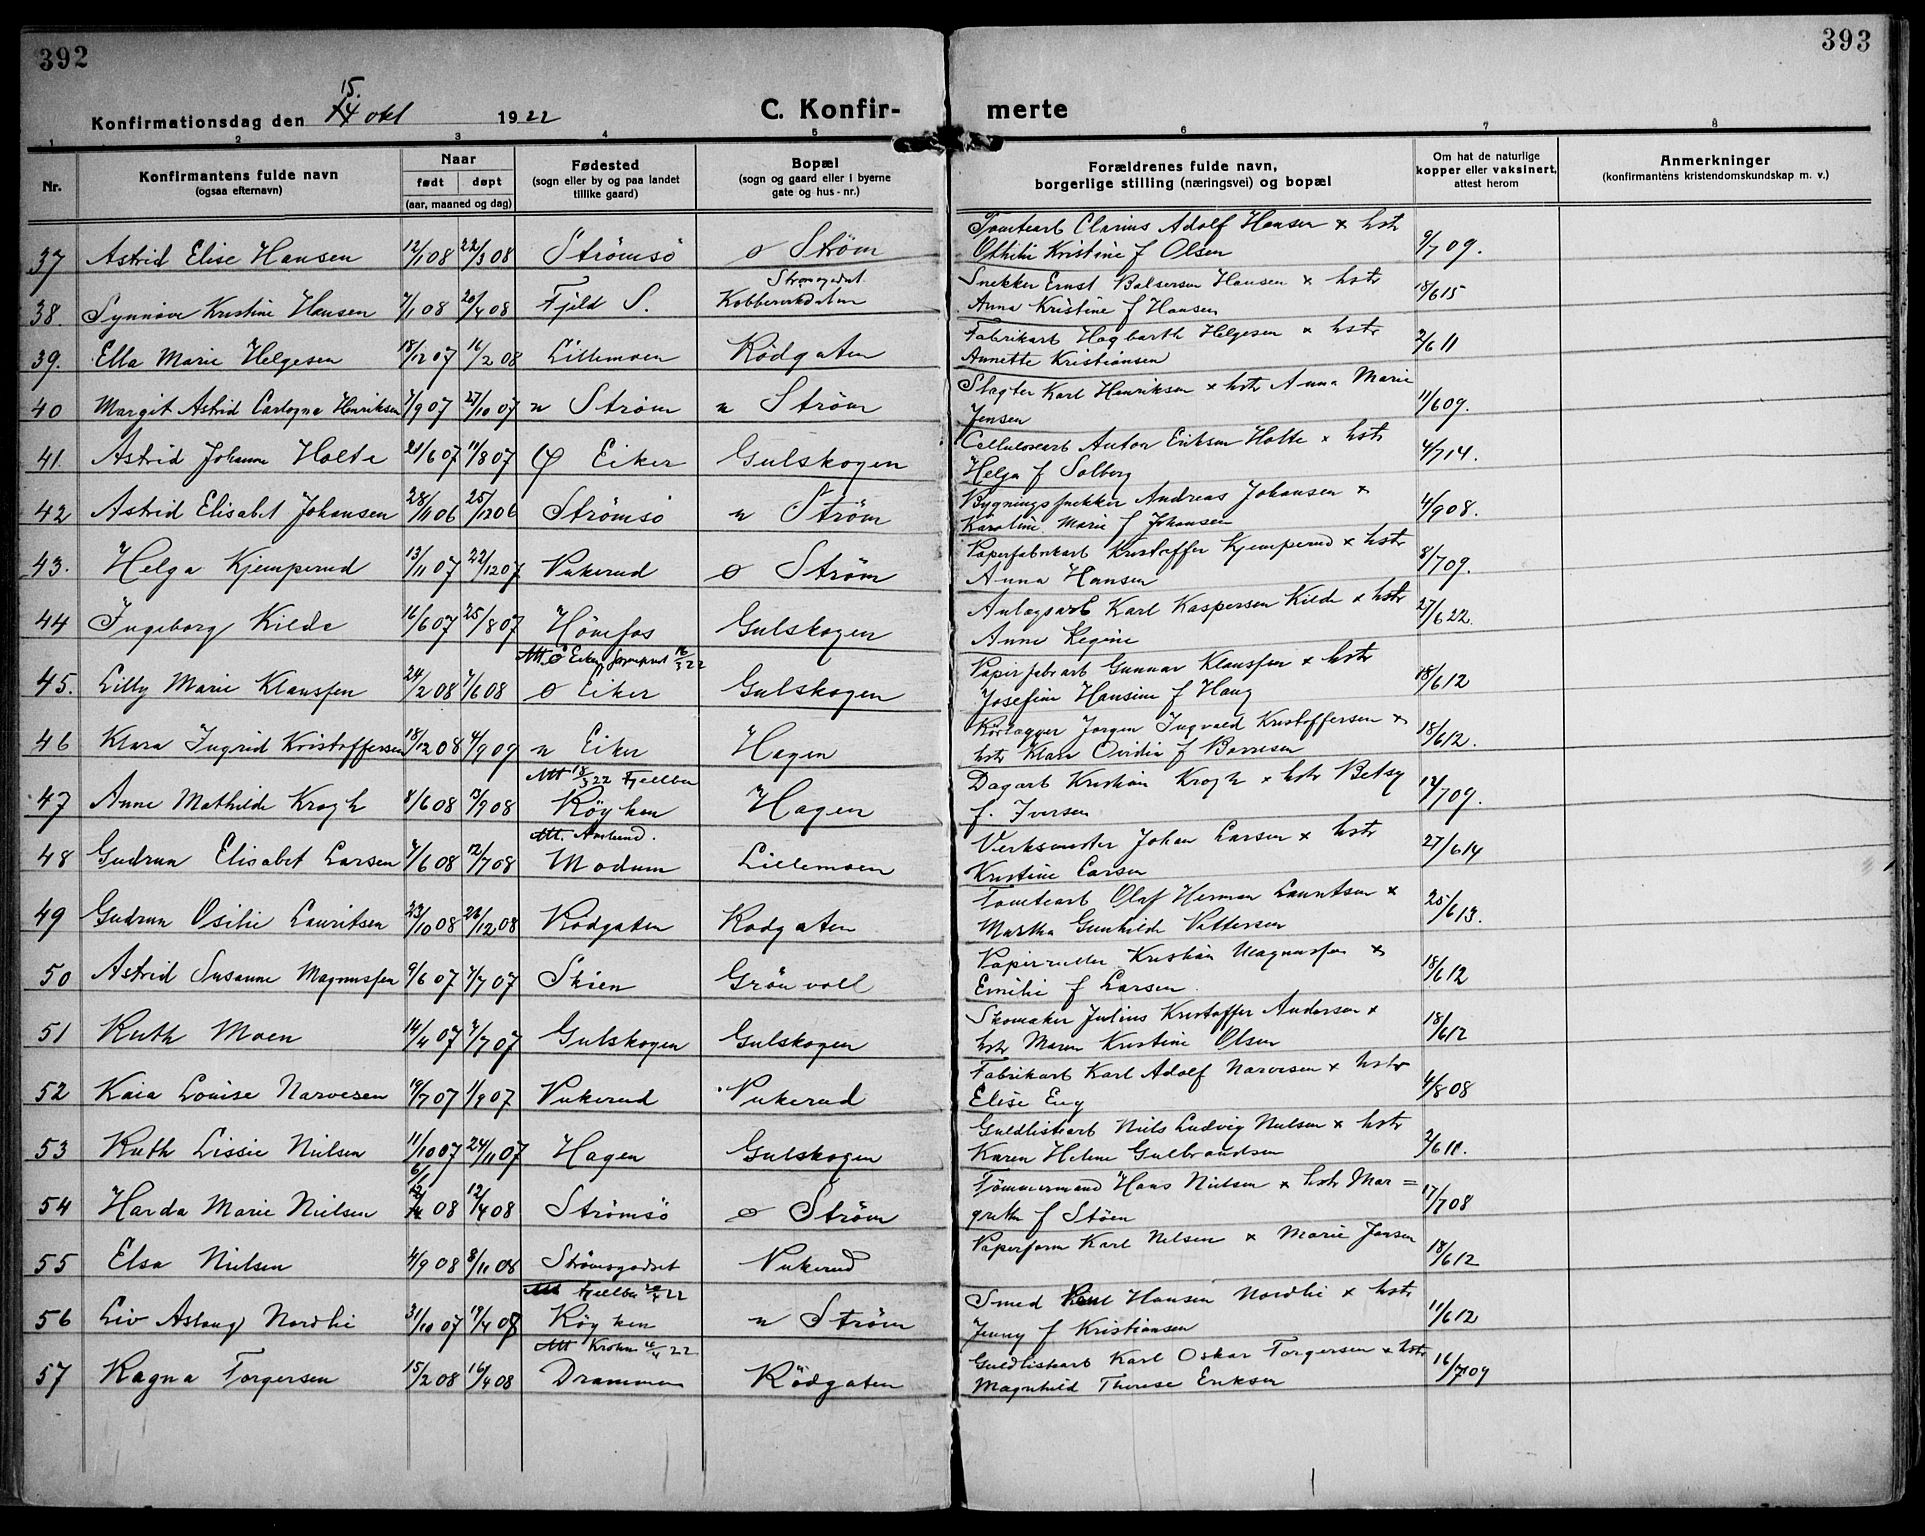 392
393
Konfirmationsdag den 15. 14 okt 1922
C. Konfir-
merte
1 2 3 4 5 6 7 8
Nr.
Konfirmantens fulde navn
(ogsaa efternavn)
Naar
født døpt
(aar, maaned og dag)
Fødested
(sogn eller by og paa landet
tillike gaard)
Bopæl
(sogn og gaard eller i byerne
gate og hus-nr.)
Forældrenes fulde navn,
borgerlige stilling (næringsvei) og bopæl
Om hat de naturlige
kopper eller vaksinert,
attest herom
Anmerkninger
(konfirmantens kristendomskundskap m. v.)
Tomtearb Clarius Adolf Hansen x hstr
37 Astrid Elise Hansen 12/1 08 22/3 08 Strömsö ø Strøm Othilie Kristine f Olsen 9/7 09.
Strømsgodset
Snekker Ernst Balsersen Hansen x hstr
38. Synnøve Kristine Hansen 7/1 08 20/4 08 Fjeld S. Kobbervikdalen Anna Kristine f Hansen 18/6 15
Fabrikarb Hagbarth Helgesen x hstr
39. Ella Marie Helgesen 18/12 07 16/2 08 Lillemoen Rödgaten Annette Kristiansen 2/6 11
Slagter Karl Henriksen x hstr Anna Marie
40 Margit Astrid Henriksen 7/9 07 27/10 07 n Strøm n Strøm Jensen 11/6 09.
Cellulosearb Anton Eriksen Holte x hstr
41. Astrid Johanne Holte 21/6 07 11/8 07 Ø Eiker Gulskogen Helga f Solberg 4/7 14.
Bygningssnekker Andreas Johansen x
42 Astrid Elisabet Johansen 28/11 06 25/12 06 Strömsö n Strøm Karoline Marie f Johansen 4/9 08.
Papirfabrikarb Kristoffer Kjemperud x hstr
43. Helga Kjemperud 13/11 07 22/12 07 Vukerud ø Strøm Anna Hansen 8/7 09.
Anlægsarb Karl Kaspersen Kilde x hstr
44 Ingeborg Kilde 16/6 07 25/8 07 Hönefos Gulskogen Anne Regine 27/6 22.
Att Ø Eiker 22
Papirfabrarb Gunnar Klaussen x hstr
45. Lilly Marie Klaussen 24/2 08 7/6 08 ø Eiker Gulskogen Josefine Hansine f Haug 18/6 12
Kørlægger Jørgen Ingvald Kristoffersen x
46 Klara Ingrid Kristoffersen 18/12 08 4/9 09 n Eiker Hagen hstr Klara f 18/6 12.
Att 18/3 22 Fjellbu
Dagarb Kristian Krogh x hstr Betsy
47 Anne Mathilde Krogh 8/6 08 13/9 08 Røyken Hagen f. Iversen 12/7 09.
Att.
Verksmester Johan Larsen x hstr
48 Gudrun Elisabet Larsen 7/6 08 12/7 08 Modum Lillemoen Kristine Larsen 27/6 14
Tomtearb Olaf Herman Lauritsen x
49 Gudrun Osilie Lauritsen 23/10 08 26/12 08 Rödgaten Rodgaten Martha Gunhilde Pettersen 25/6 13.
Papirruller Kristian Magnussen x
50 Astrid Susanne Magnussen 9/6 07 7/7 07 Skien Grönvoll Emilie f Larsen. 18/6 12
Skomaker Julius Kristoffer Andersen x
51 Ruth Moen 14/4 07 7/7 07 Gulskogen Gulskogen hstr Maren Kristine Olsen 18/6 12
Fabrikarb Karl Adolf Narvesen x hstr
52 Kaia Louise Narvesen 19/7 07 1/9 07 Vukerud Vukerud Elise Eng 4/8 08
Guldlistearb Nils Ludvig Nielsen x hstr
53 Ruth Lissie Nielsen 11/10 07 24/11 07 Hagen Gulskogen Karen Helene Gulbrandsen 2/6 11.
Tömmermand Hans Nielsen x hstr Mar=
54 Harda Marie Nielsen 6/1 08 12/4 08 Strömsö ø Strøm grethe f Støen 17/7 08
Papirform Karl Nielsen x Marie Jensen
55 Elsa Nielsen 4/9 08 8/11 08 Strömsgodset Vukerud 18/6 12
Att Fjellbu 20/4 22
Smed Karl Hansen Nordli x hstr
56 Liv Aslaug Nordli 31/10 07 19/4 08 Røyken n Strøm Jenny f Kristiansen 11/6 12
Att Krohn 22
Guldlistearb Karl Oskar Torgersen x hstr
57 Ragna Torgersen 15/2 08 16/4 08 Drammen Rödgaten Magnhild Therese Eriksen 16/7 09